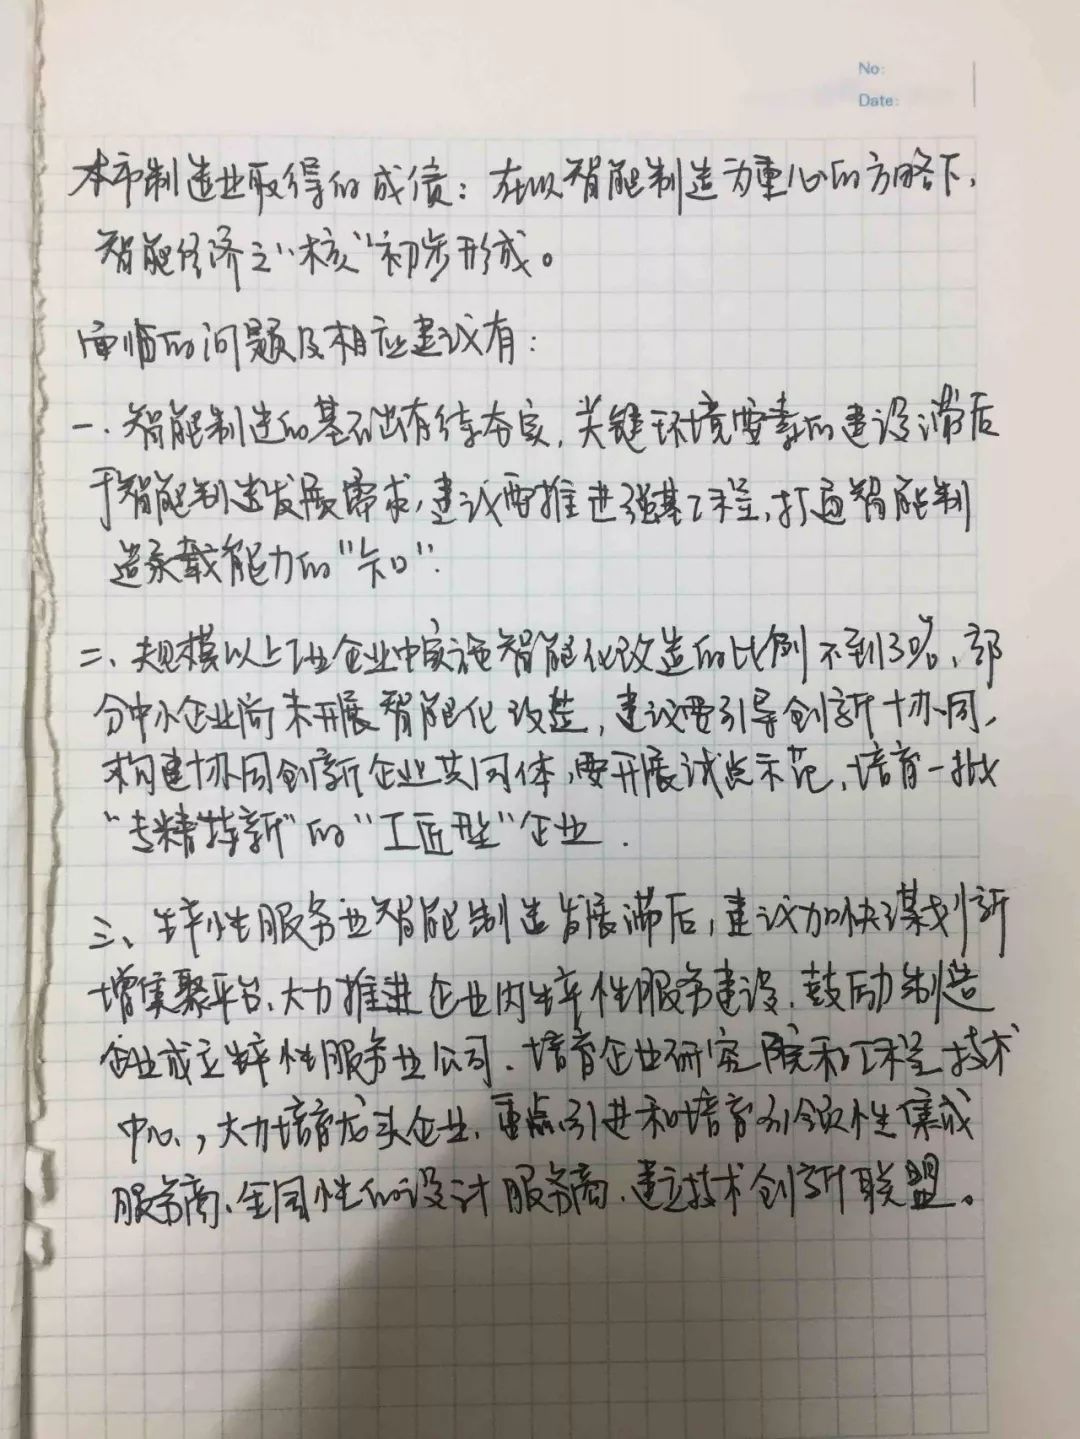 No:
Date:
本市制造业取得的成绩：在以智能制造为重心的方略下，
智能经济之"核"初步形成。
面临的问题及相应建议有：
一.智能制造的基础有待夯实,关键环境要素的建设滞后
于智能制造发展需求,建议要推进强基工程,打通智能制
造承载能力的"卡口".
二、规模以上工业企业中实施智能化改造的比例不到30%、部
分中小企业尚未开展智能化改造,建议要引导创新十协同,
构建协同创新企业共同体,要开展试点示范、培育一批
"专精特新"的"工匠型"企业.
三、生产性服务业智能制造发展滞后,建议加快谋划新
增集聚平台、大力推进企业内生产性服务建设、鼓励制造
企业成立生产性服务业公司、培育企业研究院和工程技术
中心、,大力培育龙头企业、重点引进和培育引领性集成
服务商、全国性的设计服务商、建立技术创新联盟。